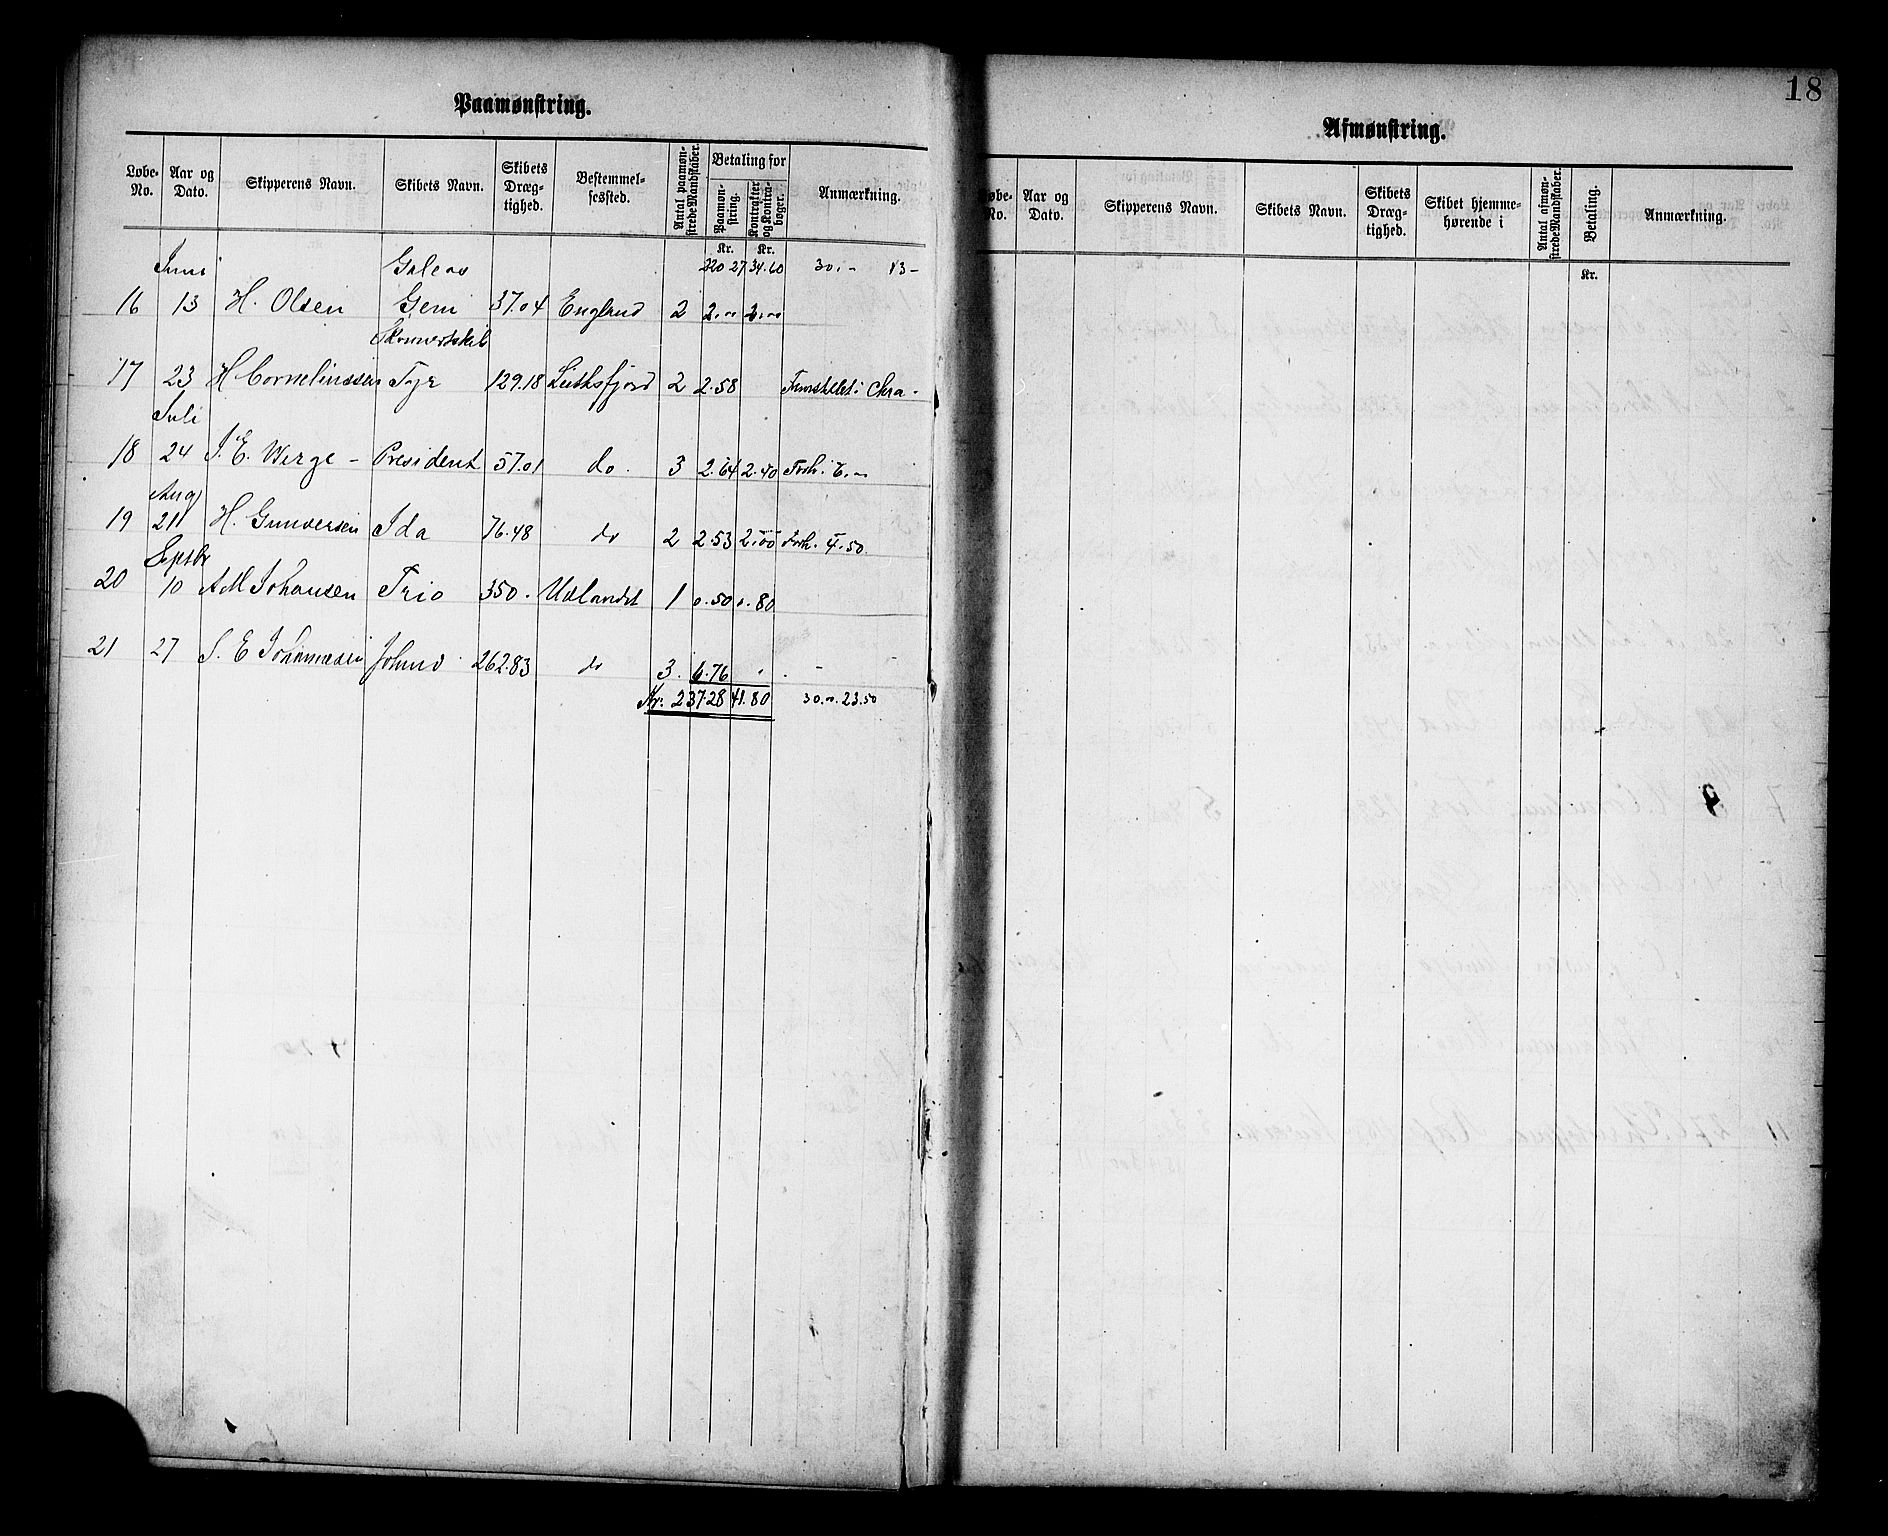 Paamønstring.
Løbe-No. Aar og Dato. Skipperens Navn. Skibets Navn. Skibets Dræg-tighed. Bestemmel-sessted. Antal paamøn-strede Mandskaber. Betaling for Paamøn-string. Kontrakter og Kontra-bøger. Anmærkning.
Kr. Kr.
Juni Galeas 220 27 34.60 30.- 13-
16 13 H. Olsen Gem 37.04 England 2 2.00 2.00
Skonnertskib
17 23 H Corneliussen Tyr 129.18 2 2.58
Juli
18 24 J. E. Werge - President 57.01 do. 3 2.64 2.40 Forh. 6.00
Aug
19 21 H. Gunversen Ida 76.48 do 2 2.53 2.00 Forh. 4.50
Septbr
20 10 A M Johansen Trio 350. Udlandet 1 0.50 0.80
21 27 S. E Johannesen 262.83 do 3. 6.76
Kr. 237.28 41.80 30.00 23.50
18
Afmønstring.
Løbe-No. Aar og Dato. Skipperens Navn. Skibets Navn. Skibets Dræg-tighed. Skibet hjemme-hørende i Antal afmøn-strede Mandskaber. Betaling. Anmærkning.
Kr.